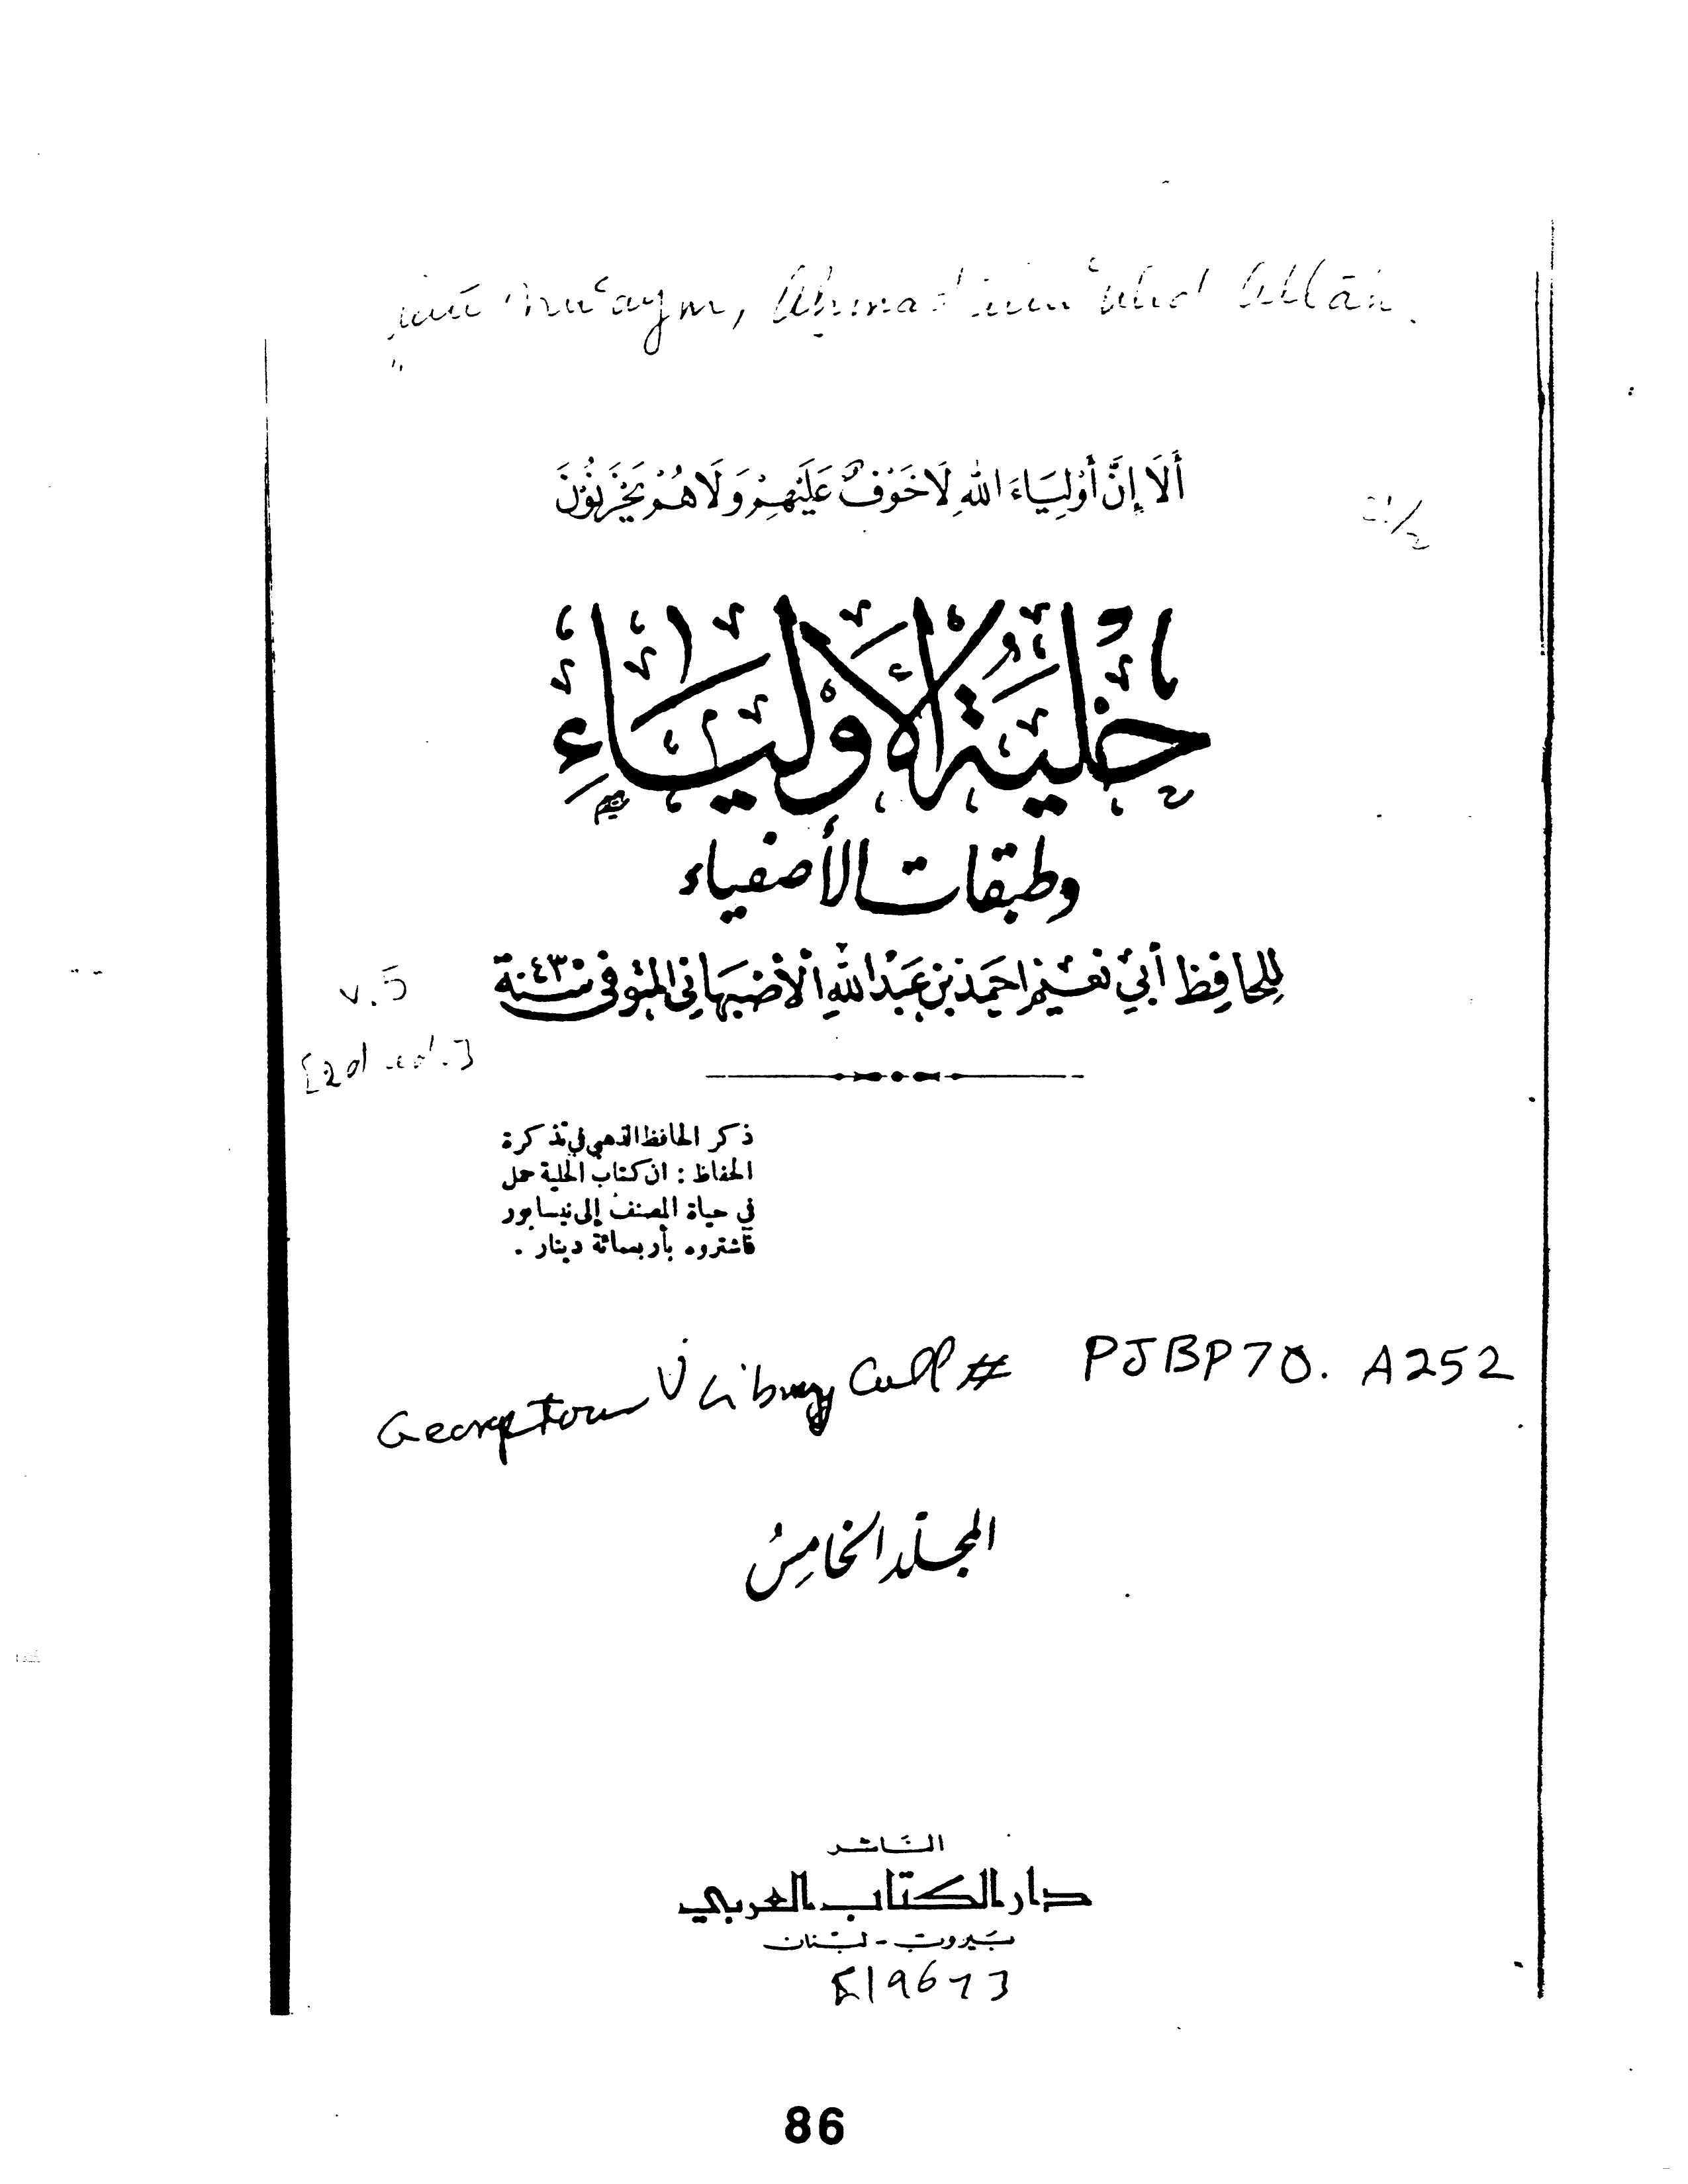 Abū Nuʿaym, Aḥmad ibn ʿAbd Allāh.
أَلَا إِنَّ أَوْلِيَاءَ اللهِ لَا خَوْفٌ عَلَيْهِمْ وَلَا هُمْ يَحْزَنُوْنَ
حِلْيَةُ الْأَوْلِيَاءِ
وطبقات الأصفياء
لِلْحَافِظِ أَبِي نُعَيْمٍ اَحْمَدَ بْنِ عَبْدِ اللهِ الْأَصْبَهَانِي المتوفى سنة ٤٣٠
v.5
[2d ed.]
ذكر الحافظ الذهبي في تذكرة
الحفاظ : ان كتاب الحلية حمل
في حياة المصنف إلى نيسابور
فاشتروه بأربعمائة دينار .
Georgetown U Library Call # PJBP70. A252
المجلد الخامِسُ
النَّاشر
دار الكتاب العربي
بَيروت - لبْنان
[1967]
86